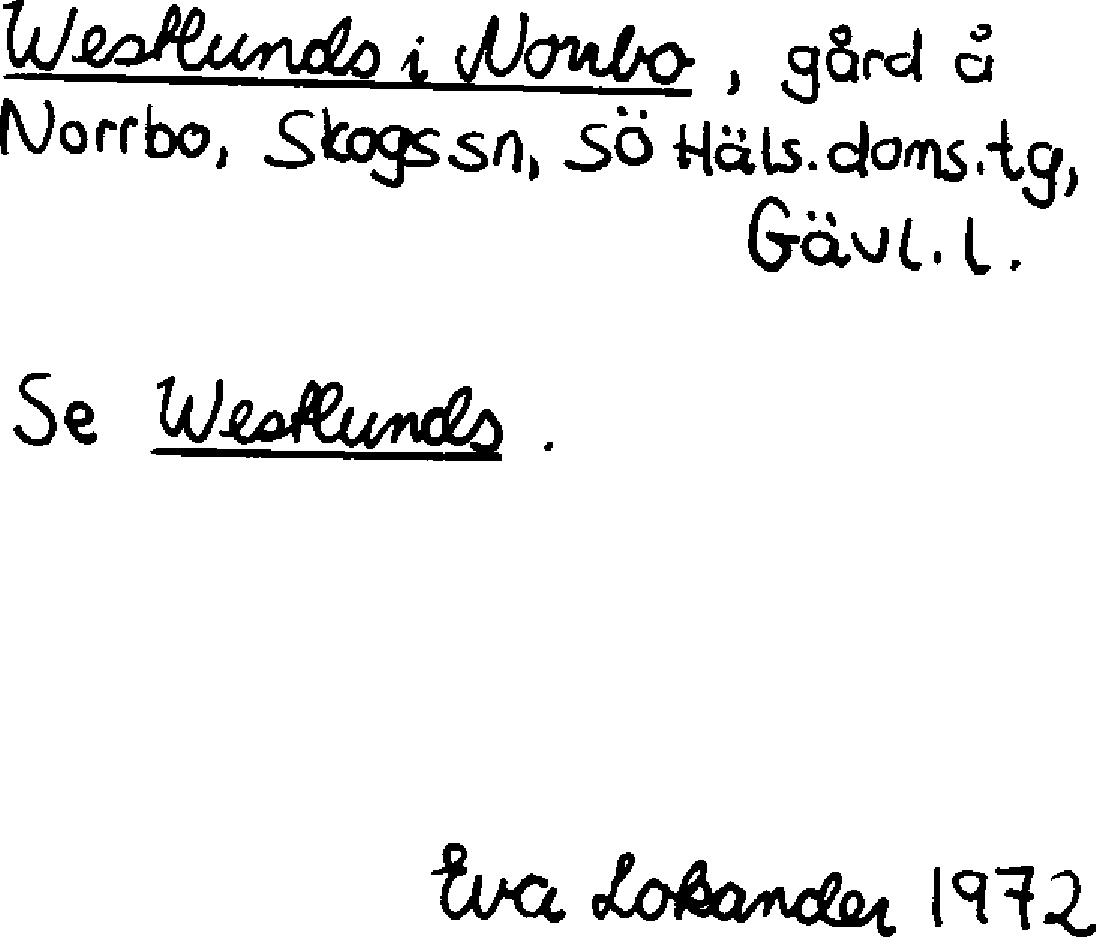 Westlunds i Norrbo, gård å
Norrbo, Skogs sn, Sö Häls. doms. tg,
Gävl. l.
Se Westlunds.
Eva Lokander 1972